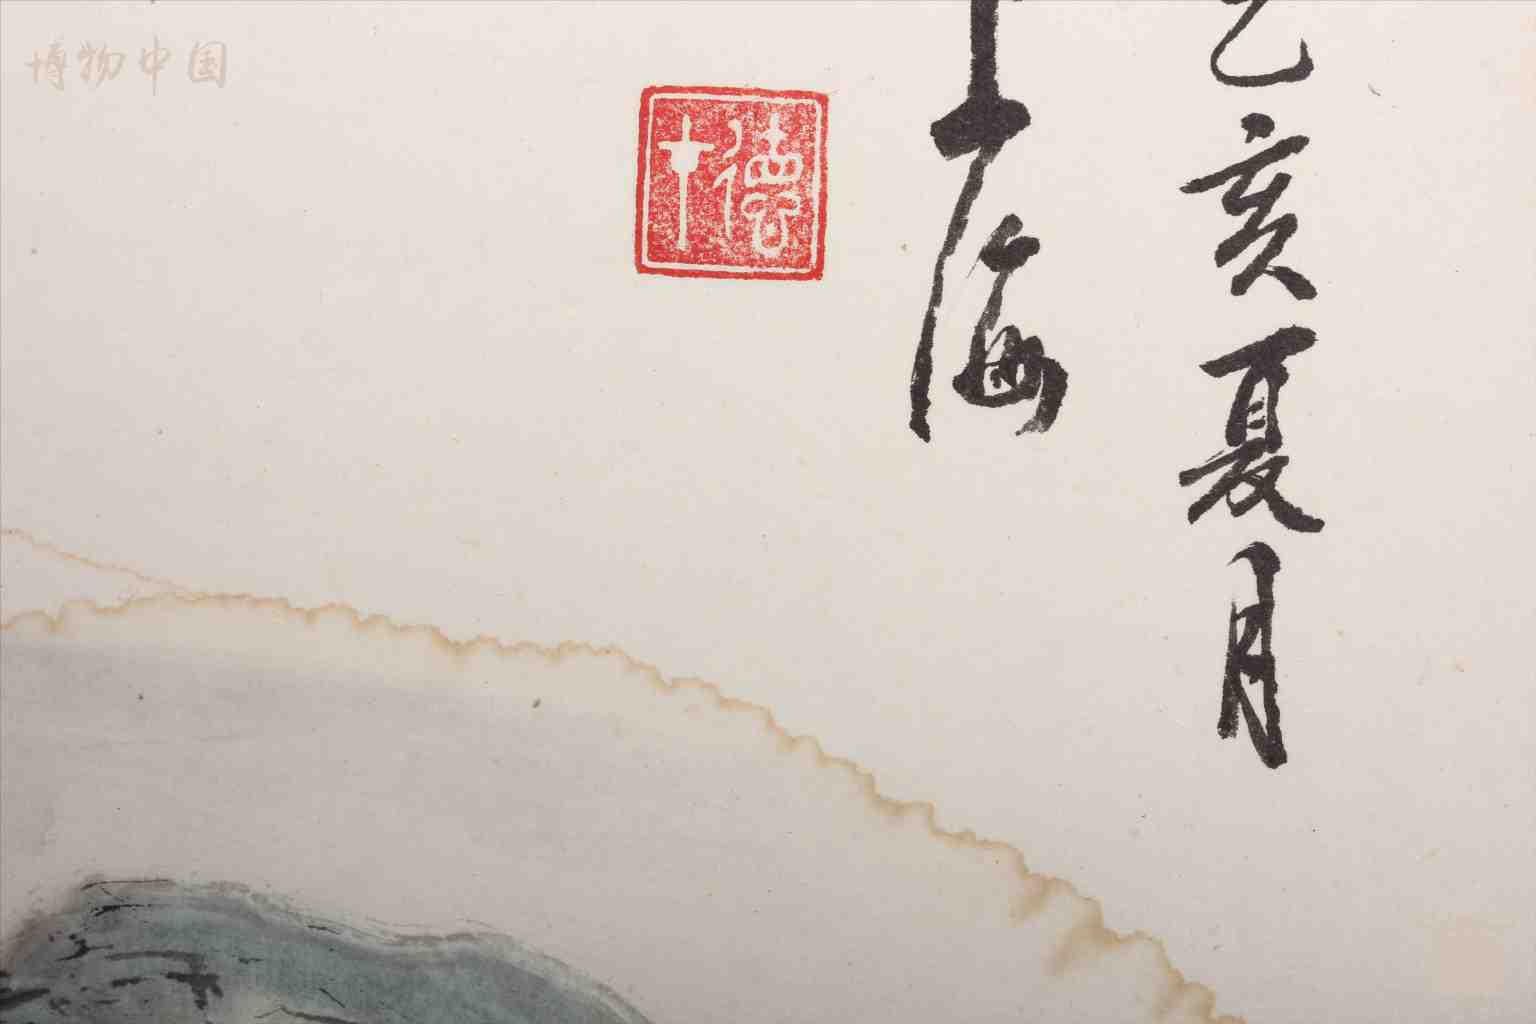 博物中国
乙亥夏月
上海
德十